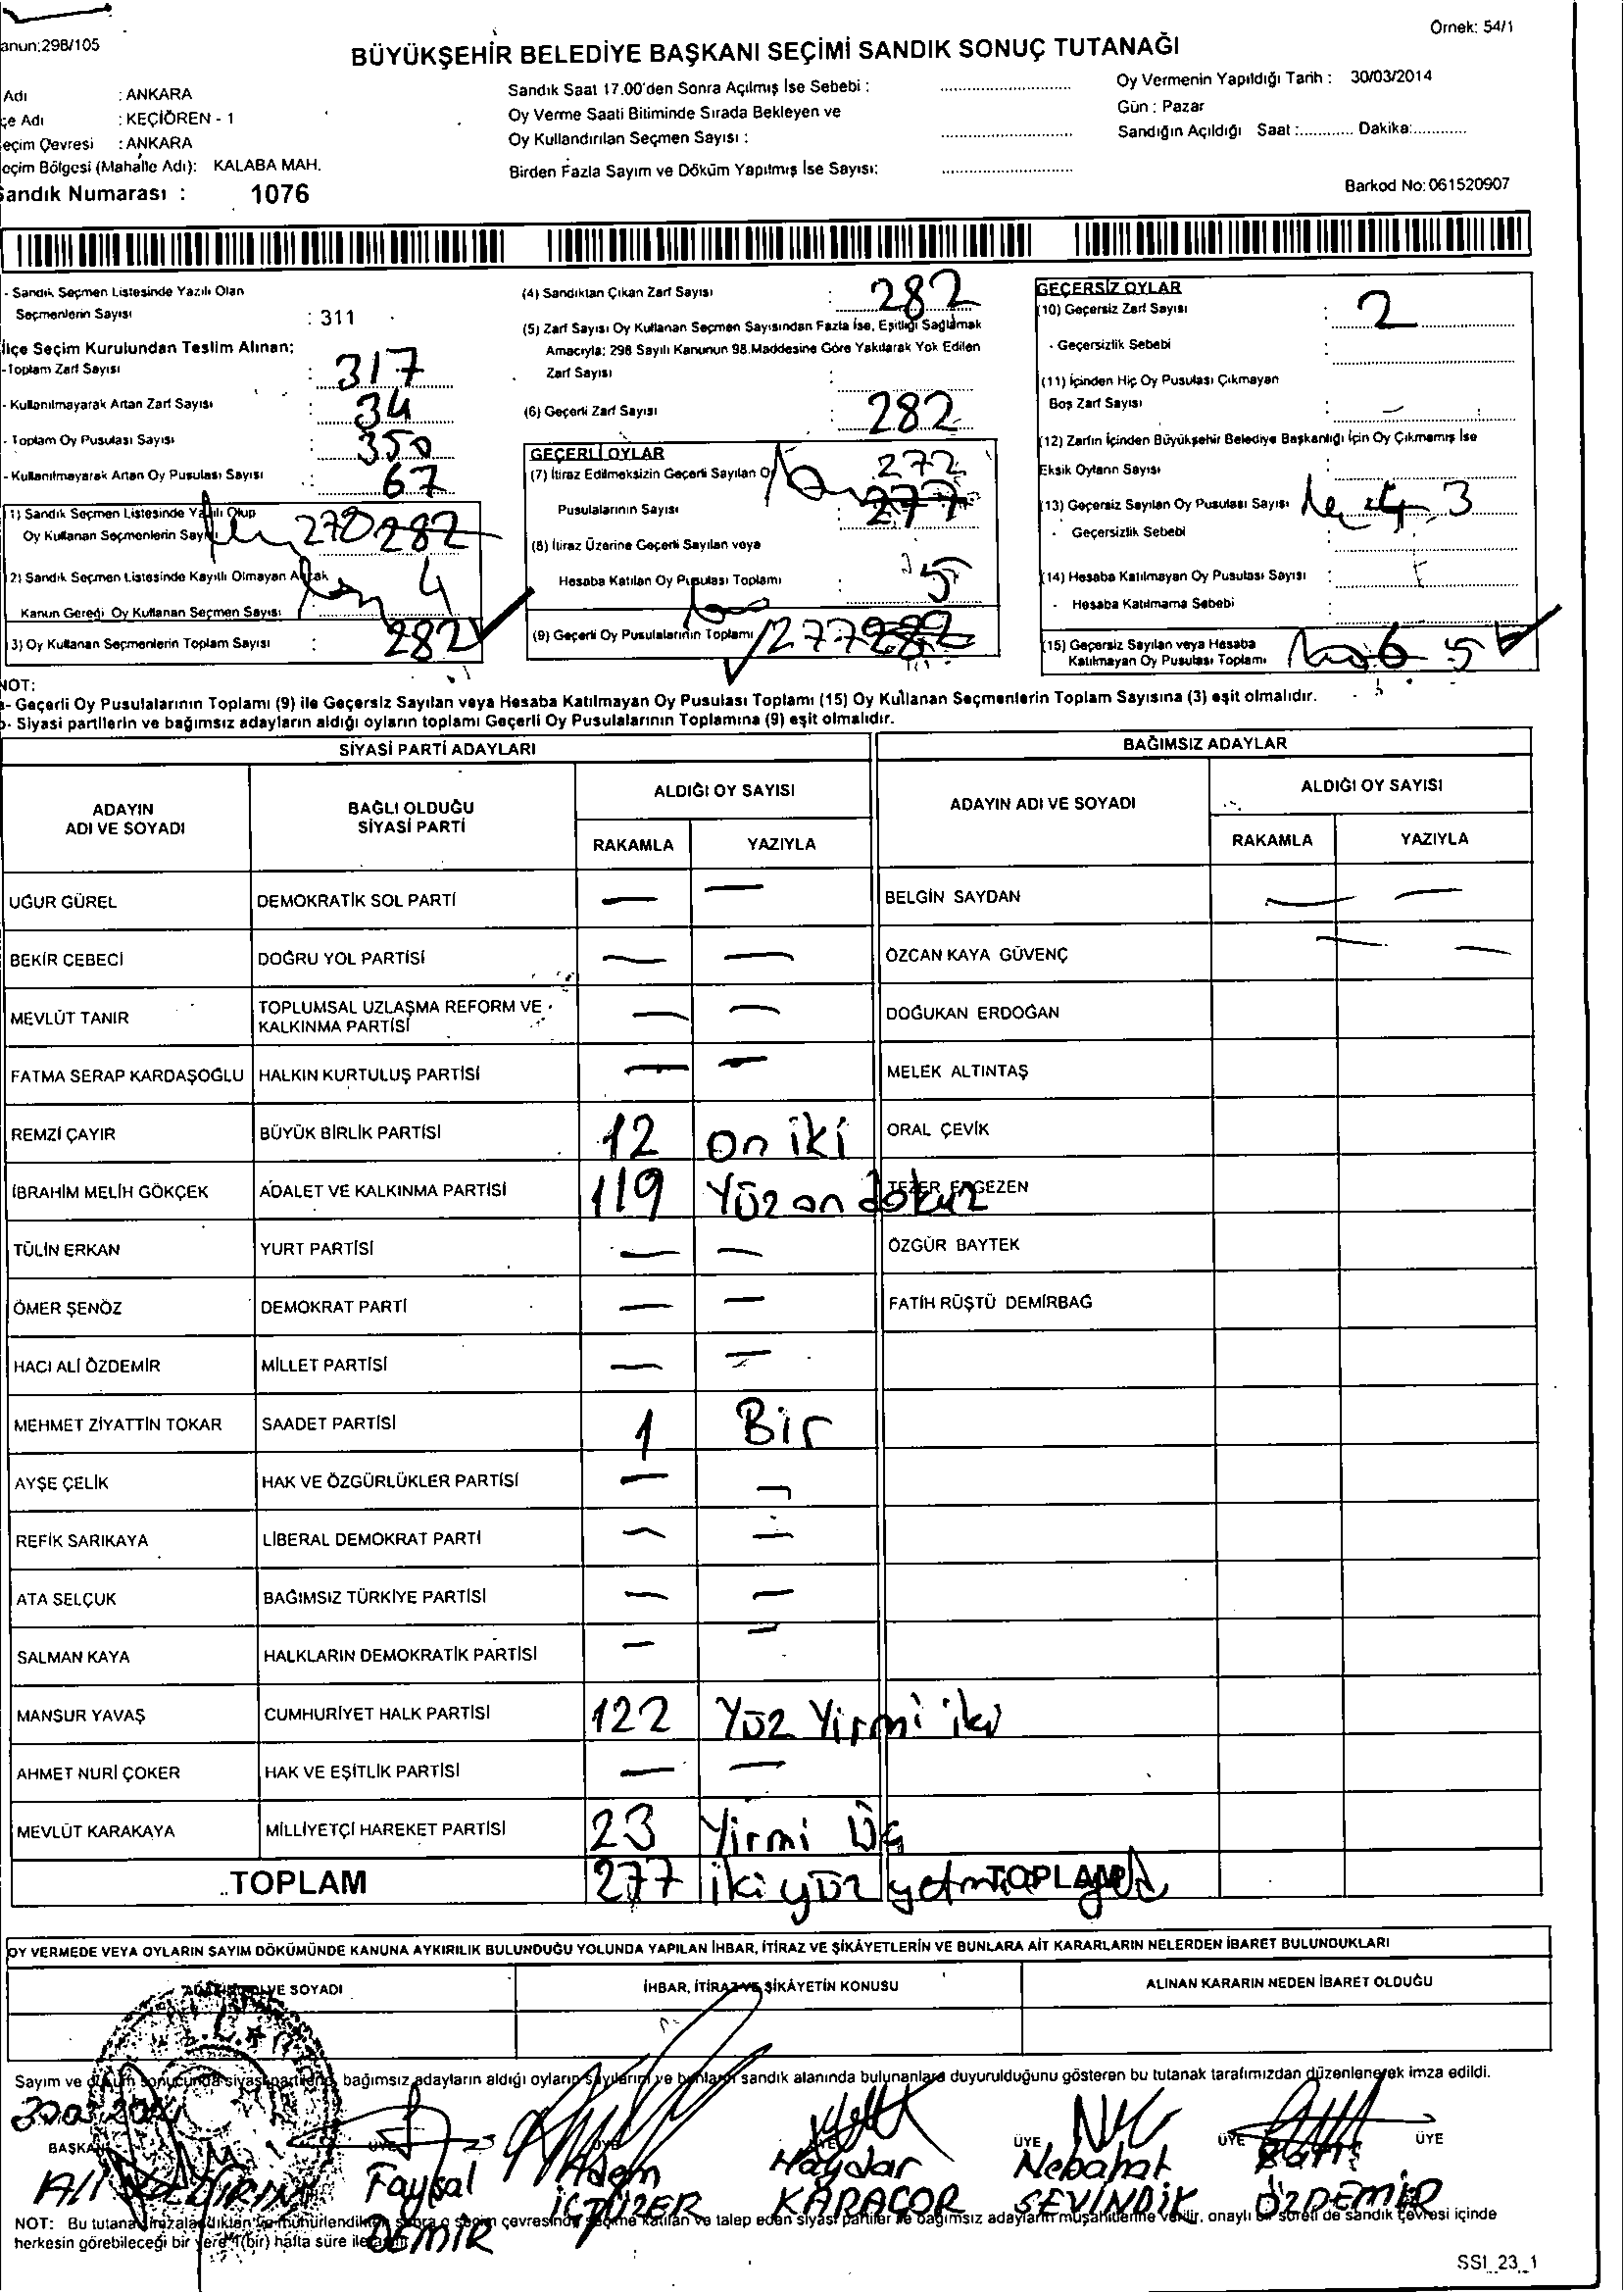 anun:298/105
Örnek: 54/1
BÜYÜKŞEHİR BELEDİYE BAŞKANI SEÇİMİ SANDIK SONUÇ TUTANAĞI
Adı : ANKARA
çe Adı : KEÇİÖREN - 1
eçim Çevresi : ANKARA
eçim Bölgesi (Mahalle Adı): KALABA MAH.
Sandık Numarası : 1076
Sandık Saat 17.00'den Sonra Açılmış İse Sebebi :
Oy Verme Saati Bitiminde Sırada Bekleyen ve
Oy Kullandırılan Seçmen Sayısı :
Birden Fazla Sayım ve Döküm Yapılmış İse Sayısı:
Oy Vermenin Yapıldığı Tarih : 30/03/2014
Gün : Pazar
Sandığın Açıldığı Saat :............ Dakika:............
Barkod No: 061520907
- Sandık Seçmen Listesinde Yazılı Olan
Seçmenlerin Sayısı : 311
İlçe Seçim Kurulundan Teslim Alınan;
-Toplam Zarf Sayısı : 317
- Kullanılmayarak Artan Zarf Sayısı : 34
- Toplam Oy Pusulası Sayısı : 350
- Kullanılmayarak Artan Oy Pusulası Sayısı : 67
1) Sandık Seçmen Listesinde Yazılı Olup
Oy Kullanan Seçmenlerin Sayısı 278 282
2) Sandık Seçmen Listesinde Kayıtlı Olmayan Ancak
Kanun Gereği Oy Kullanan Seçmen Sayısı: 4
3) Oy Kullanan Seçmenlerin Toplam Sayısı : 282
(4) Sandıktan Çıkan Zarf Sayısı : 282
(5) Zarf Sayısı Oy Kullanan Seçmen Sayısından Fazla İse, Eşitliği Sağlamak
Amacıyla; 298 Sayılı Kanunun 98.Maddesine Göre Yakılarak Yok Edilen
Zarf Sayısı :
(6) Geçerli Zarf Sayısı : 282
GEÇERLİ OYLAR
(7) İtiraz Edilmeksizin Geçerli Sayılan O 272
Pusulalarının Sayısı 277
(8) İtiraz Üzerine Geçerli Sayılan veya
Hesaba Katılan Oy Pusulası Toplamı : 5
(9) Geçerli Oy Pusulalarının Toplamı 277 282
GEÇERSİZ OYLAR
(10) Geçersiz Zarf Sayısı : 2
- Geçersizlik Sebebi :
(11) İçinden Hiç Oy Pusulası Çıkmayan
Boş Zarf Sayısı : -
(12) Zarfın İçinden Büyükşehir Belediye Başkanlığı İçin Oy Çıkmamış İse
Eksik Oyların Sayısı :
(13) Geçersiz Sayılan Oy Pusulası Sayısı 4 3
- Geçersizlik Sebebi :
(14) Hesaba Katılmayan Oy Pusulası Sayısı :
- Hesaba Katılmama Sebebi :
(15) Geçersiz Sayılan veya Hesaba
Katılmayan Oy Pusulası Toplamı 6 5
NOT:
a- Geçerli Oy Pusulalarının Toplamı (9) ile Geçersiz Sayılan veya Hesaba Katılmayan Oy Pusulası Toplamı (15) Oy Kullanan Seçmenlerin Toplam Sayısına (3) eşit olmalıdır.
b- Siyasi partilerin ve bağımsız adayların aldığı oyların toplamı Geçerli Oy Pusulalarının Toplamına (9) eşit olmalıdır.
SİYASİ PARTİ ADAYLARI
BAĞIMSIZ ADAYLAR
ADAYIN ADI VE SOYADI
BAĞLI OLDUĞU SİYASİ PARTİ
ALDIĞI OY SAYISI
RAKAMLA YAZIYLA
ADAYIN ADI VE SOYADI
ALDIĞI OY SAYISI
RAKAMLA YAZIYLA
UĞUR GÜREL DEMOKRATİK SOL PARTİ — — BELGİN SAYDAN — —
BEKİR CEBECİ DOĞRU YOL PARTİSİ — — ÖZCAN KAYA GÜVENÇ — —
MEVLÜT TANIR TOPLUMSAL UZLAŞMA REFORM VE KALKINMA PARTİSİ — — DOĞUKAN ERDOĞAN
FATMA SERAP KARDAŞOĞLU HALKIN KURTULUŞ PARTİSİ — — MELEK ALTINTAŞ
REMZİ ÇAYIR BÜYÜK BİRLİK PARTİSİ 12 on iki ORAL ÇEVİK
İBRAHİM MELİH GÖKÇEK ADALET VE KALKINMA PARTİSİ 119 Yüz on dokuz TEZER ERGEZEN
TÜLİN ERKAN YURT PARTİSİ — — ÖZGÜR BAYTEK
ÖMER ŞENÖZ DEMOKRAT PARTİ — — FATİH RÜŞTÜ DEMİRBAĞ
HACI ALİ ÖZDEMİR MİLLET PARTİSİ — —
MEHMET ZİYATTİN TOKAR SAADET PARTİSİ 1 Bir
AYŞE ÇELİK HAK VE ÖZGÜRLÜKLER PARTİSİ — —
REFİK SARIKAYA LİBERAL DEMOKRAT PARTİ — —
ATA SELÇUK BAĞIMSIZ TÜRKİYE PARTİSİ — —
SALMAN KAYA HALKLARIN DEMOKRATİK PARTİSİ — —
MANSUR YAVAŞ CUMHURİYET HALK PARTİSİ 122 Yüz Yirmi iki
AHMET NURİ ÇOKER HAK VE EŞİTLİK PARTİSİ — —
MEVLÜT KARAKAYA MİLLİYETÇİ HAREKET PARTİSİ 23 Yirmi Üç
TOPLAM 277 iki yüz yetmiş yedi TOPLAM
OY VERMEDE VEYA OYLARIN SAYIM DÖKÜMÜNDE KANUNA AYKIRILIK BULUNDUĞU YOLUNDA YAPILAN İHBAR, İTİRAZ VE ŞİKÂYETLERİN VE BUNLARA AİT KARARLARIN NELERDEN İBARET BULUNDUKLARI
ADAYIN ADI VE SOYADI İHBAR, İTİRAZ VE ŞİKÂYETİN KONUSU ALINAN KARARIN NEDEN İBARET OLDUĞU
Sayım ve döküm sonucunda siyasi partilerin, bağımsız adayların aldığı oyların sayılarını ve bunların sandık alanında bulunanlara duyurulduğunu gösteren bu tutanak tarafımızdan düzenlenerek imza edildi.
30.03.2014
BAŞKAN ÜYE ÜYE ÜYE ÜYE ÜYE ÜYE
Ali Faysal Adem Haydar Nebahat
DEMİR İÇDÜZER KARAÇOR SEVİNDİK ÖZDEMİR
NOT: Bu tutanak imzalandıktan ve mühürlendikten sonra o seçim çevresinde seçime katılan ve talep eden siyasi partiler ile bağımsız adayların müşahitlerine verilir, onaylı bir sureti de sandık çevresi içinde
herkesin görebileceği bir yere 1(bir) hafta süre ile asılır.
SSI_23_1